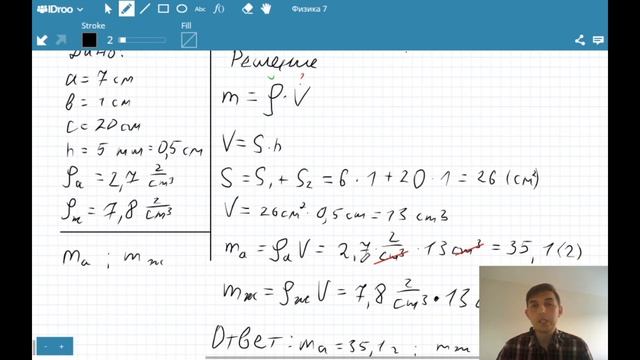 IDroo
Abc
f()
Физика 7
Stroke
2
Fill
Дано:
a = 7 см
в = 1 см
c = 20 см
h = 5 мм = 0,5 см
ρа = 2,7 г/см3
ρж = 7,8 г/см3
mа ; mж
Решение
?
m = ρ · V
V = S · h
S = S1 + S2 = 6 · 1 + 20 · 1 = 26 (см2)
V = 26 см2 · 0,5 см = 13 см3
mа = ρа V = 2,7 г/см3 · 13 см3 = 35,1 (г)
mж = ρж V = 7,8 г/см3 · 13 с
Ответ: mа = 35,1 г ; mж